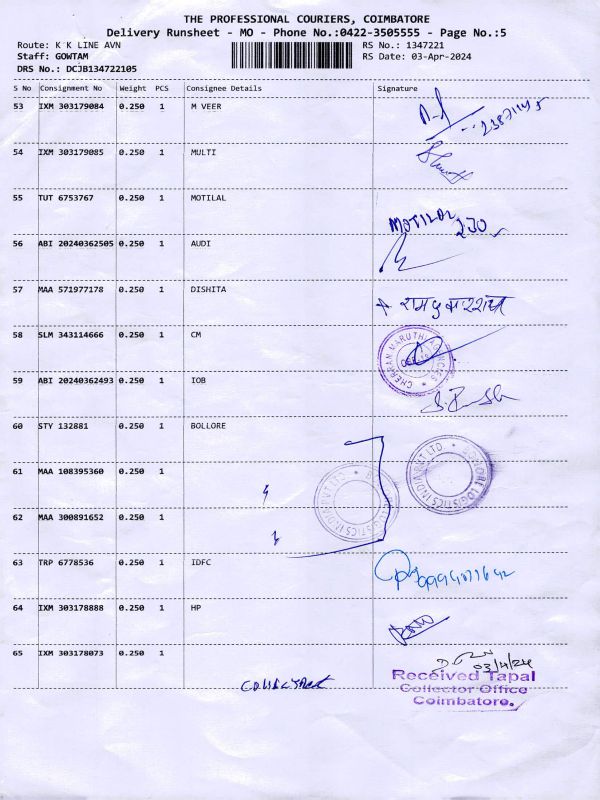 THE PROFESSIONAL COURIERS, COIMBATORE
Delivery Runsheet - MO - Phone No.:0422-3505555 - Page No.:5
Route: K K LINE AVN RS No.: 1347221
Staff: GOWTAM RS Date: 03-Apr-2024
DRS No.: DCJB134722105
S No Consignment No Weight PCS Consignee Details Signature
53 IXM 303179084 0.250 1 M VEER
54 IXM 303179085 0.250 1 MULTI
55 TUT 6753767 0.250 1 MOTILAL
MOTILAL
56 ABI 20240362505 0.250 1 AUDI
57 MAA 571977178 0.250 1 DISHITA
58 SLM 343114666 0.250 1 CM
CHERRAN MARUTHI AGENCIES
59 ABI 20240362493 0.250 1 IOB
60 STY 132881 0.250 1 BOLLORE
BOLLORE LOGISTICS INDIA PVT LTD.
61 MAA 108395360 0.250 1
LOGISTICS INDIA PVT LTD.
62 MAA 300891652 0.250 1
63 TRP 6778536 0.250 1 IDFC
64 IXM 303178888 0.250 1 HP
65 IXM 303178073 0.250 1
03/4/24
Received Tapal
Collector Office
Coimbatore.